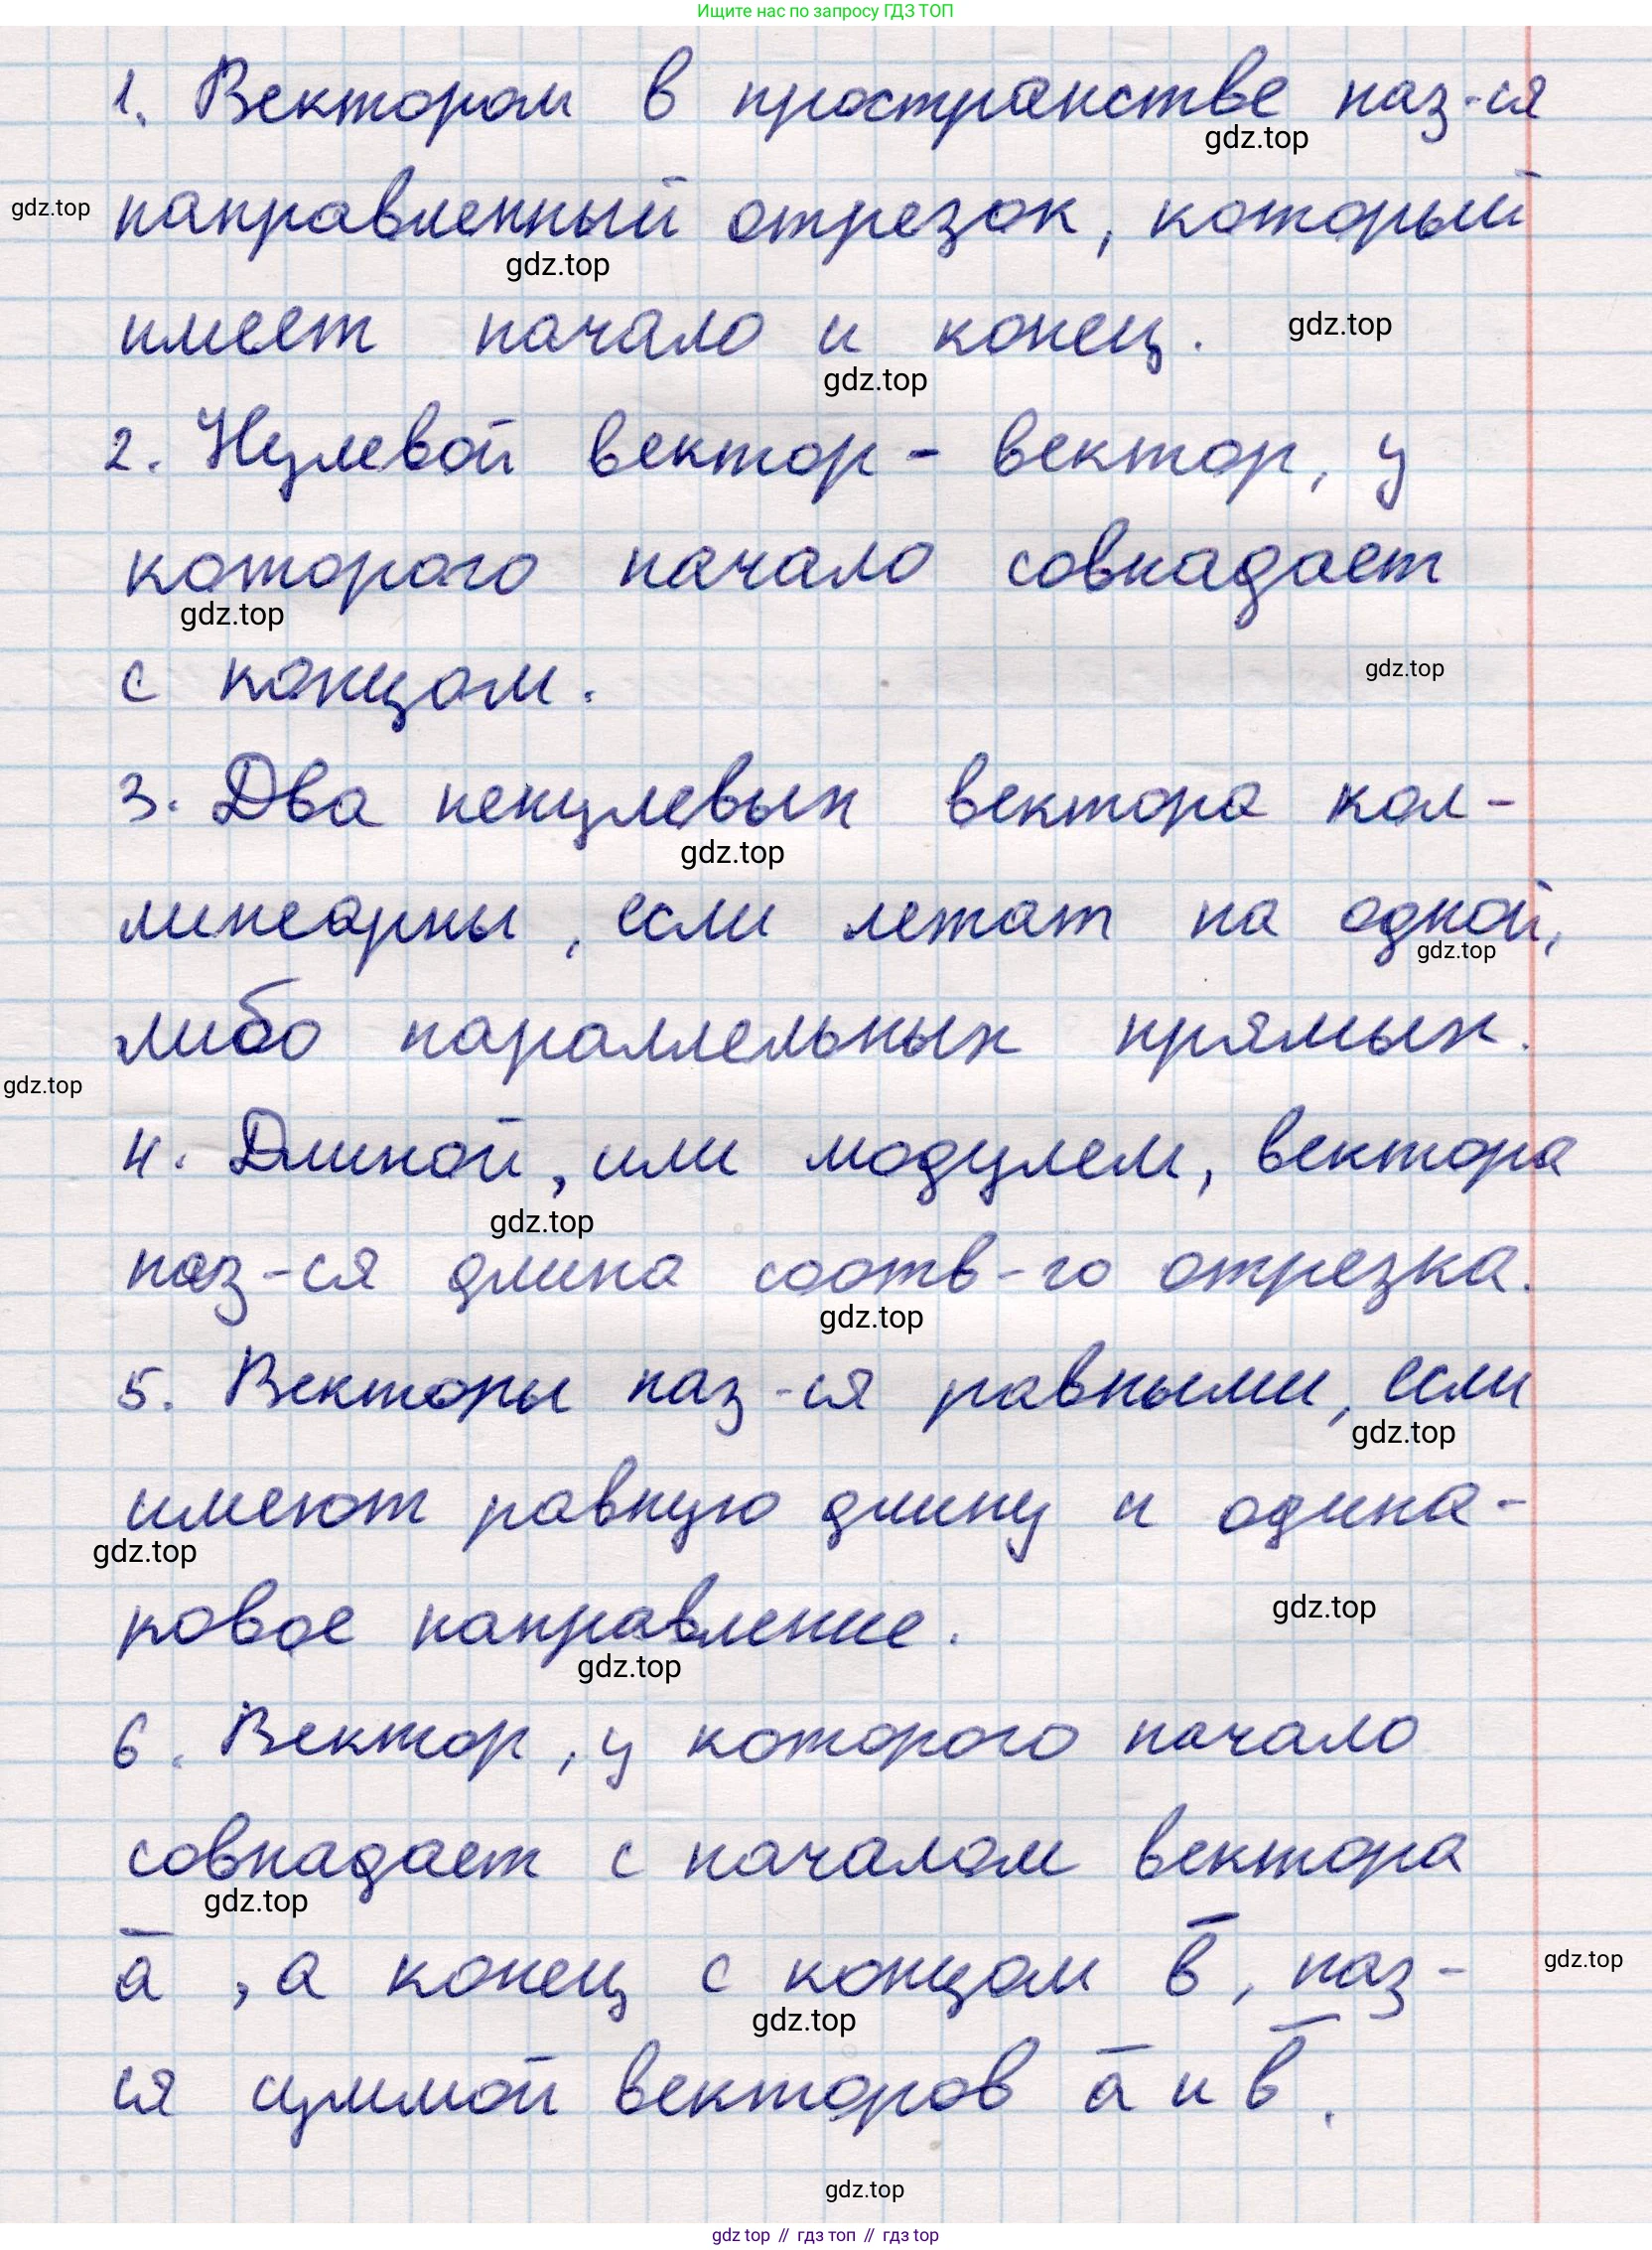 Ищите нас по запросу ГДЗ ТОП
1. Вектором в пространстве наз-ся
gdz.top
gdz.top направленный отрезок, который
gdz.top
имеет начало и конец. gdz.top
gdz.top
2. Нулевой вектор - вектор, у
которого начало совпадает
gdz.top
с концом. gdz.top
3. Два ненулевых вектора кол-
gdz.top
линеарны, если лежат на одной,
gdz.top
либо параллельных прямых.
gdz.top
4. Длиной, или модулем, вектора
gdz.top
наз-ся длина соотв-го отрезка.
gdz.top
5. Векторы наз-ся равными, если
gdz.top
имеют равную длину и одина-
gdz.top
ковое направление. gdz.top
gdz.top
6. Вектор, у которого начало
совпадает с началом вектора
gdz.top
a̅, а конец с концом b̅, наз- gdz.top
gdz.top
ся суммой векторов a̅ и b̅.
gdz.top
gdz top // гдз топ // гдз top